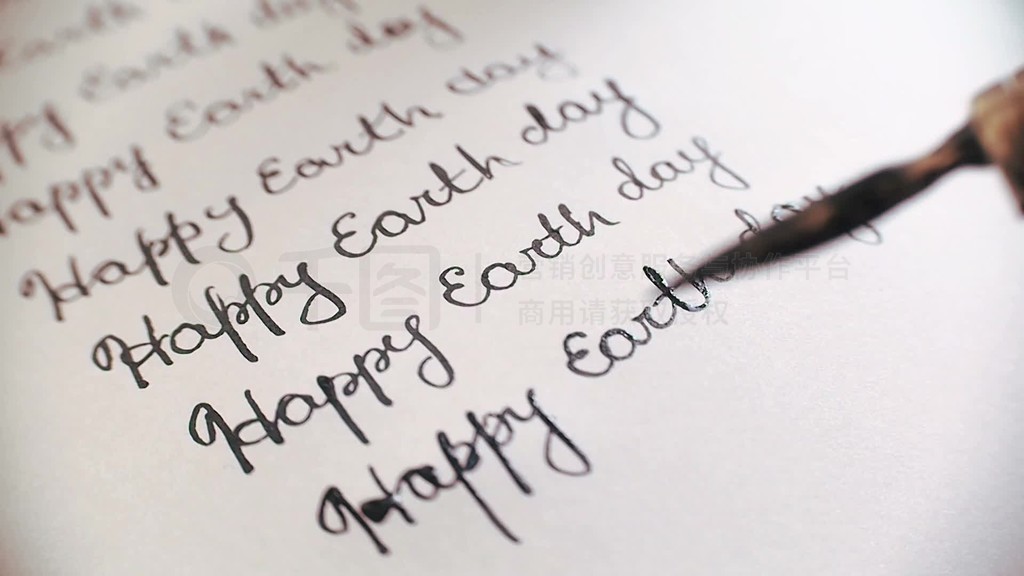 Earth
ppy Earth day
appy Earth day
Happy Earth day
Happy Earth day
Happy Earth day
Happy Earth day
千图
营销创意服务与协作平台
商用请获取授权